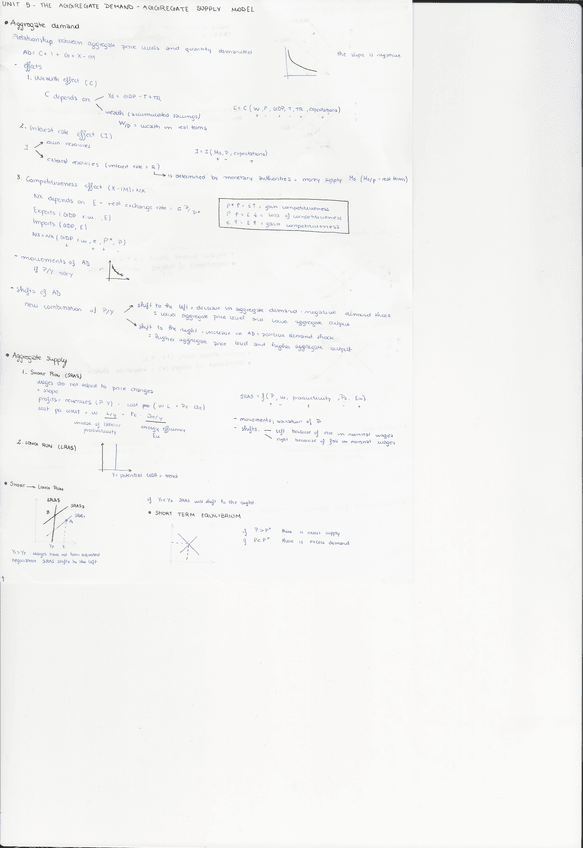 UNIT 5 - THE AGGREGATE DEMAND - AGGREGATE SUPPLY MODEL
• Aggregate demand
Relationship between aggregate price levels and quantity demanded
AD = C + I + G + X - IM
the slope is negative
- effects
1. Wealth effect (C)
C depends on
Yd = GDP - T + TR
wealth (accumulated savings)
W/P = wealth in real terms
C = C (W, P, GDP, T, TR, expectations)
2. Interest rate effect (I)
I
own resources
external resources (interest rate = R)
I = I (Ms, P, expectations)
is determined by monetary authorities = money supply Ms (Ms/P = real terms)
3. Competitiveness effect (X - IM) = NX
NX depends on E = real exchange rate
Exports (GDP w, E)
Imports (GDP, E)
NX = NX (GDP w, e, P*, P)
P* ↑ = E ↑ = gain competitiveness
P ↑ = E ↓ = loss of competitiveness
e ↑ = E ↑ = gain competitiveness
- movements of AD
if P/Y vary
- shifts of AD
new combination of P/Y
shift to the left = decrease in aggregate demand = negative demand shock
= lower aggregate price level and lower aggregate output
shift to the right = increase in AD = positive demand shock
= higher aggregate price level and higher aggregate output
• Aggregate Supply
1. SHORT RUN (SRAS)
wages do not adjust to price changes
+ slope
profits = revenues (P · Y) - cost
SRAS = f (P, w, productivity
- movements: variation of P
- shifts:
left because of rise in nominal wages
right because of fall in nominal wages
inverse of labour productivity
energy efficiency
2. LONG RUN (LRAS)
Y = potential GDP = trend
• SHORT → LONG RUN
LRAS
SRAS
if Y1 < Yp SRAS will shift to the right
Y1 > Yp wages have not been adjusted
negotiations SRAS shifts to the left
• SHORT TERM EQUILIBRIUM
if P > P* there is excess supply
if P < P* there is excess demand